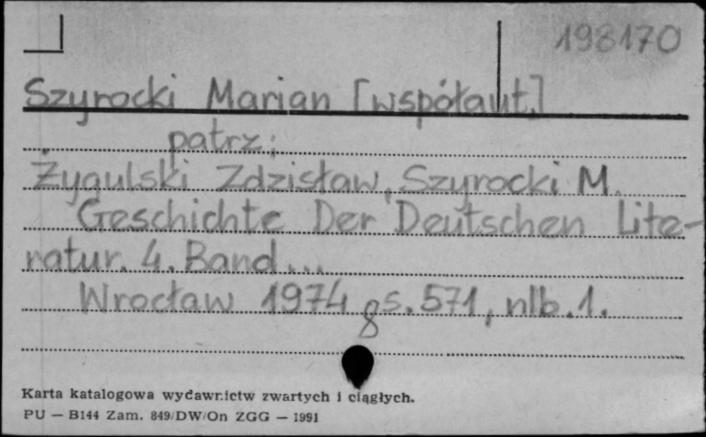 198170
Szyrocki Marian [współaut.]
patrz:
Żygulski Zdzisław, Szyrocki M.
Geschichte Der Deutschen Lite-
ratur. 4. Band...
Wrocław 1974 8 s. 571, nlb. 1.
Karta katalogowa wydawnictw zwartych i ciągłych.
PU — B144 Zam. 849/DW/On ZGG — 1991